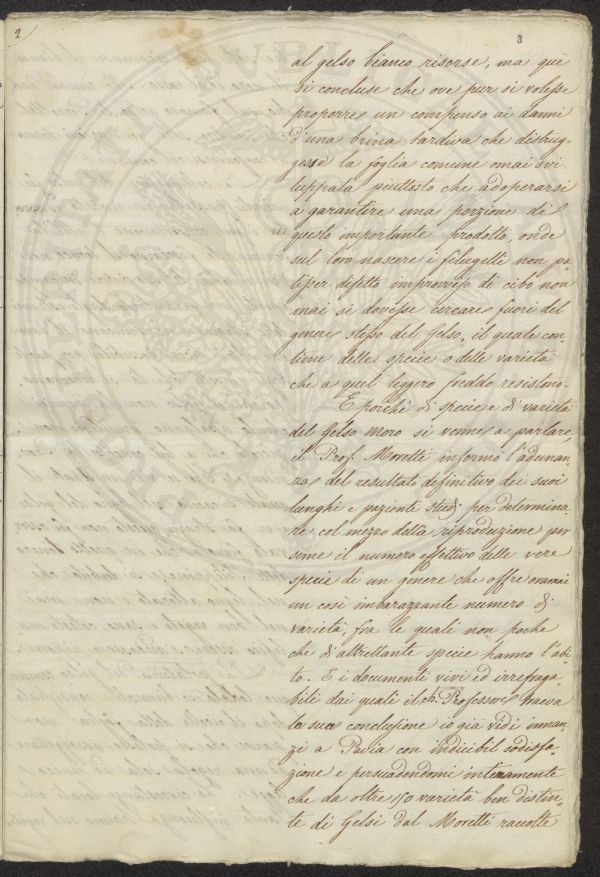 2
3
al gelso bianco risorse, ma què
si concluse che ove pur si volesse
proporre un compenso ai danni
d'una brina tardiva che distrug-
gesse la foglia comune omai svi-
luppata piuttosto che adoperarsi
a garantire una porzione di
questo importante prodotto, onde
sul loro nascere i filugelli non pa-
tisser difetto improvviso di cibo non
mai si dovesse cercare fuori del
genere stesso del Gelso, il quale con-
tiene delle specie o delle varietà
che a quel leggero freddo resistono.
E poichè di specie e di varietà
del Gelso moro si venne a parlare,
il Prof. Moretti informò l'adunan-
za del resultato definitivo dei suoi
lunghi e pazienti studj per determina-
re col mezzo della riproduzione per
seme il numero effettivo delle vere
specie di un genere che offre oramai
un così imbarazzante numero di
varietà, fra le quali non poche
che di altrettante specie hanno l'abi-
to. E i documenti vivi ed irrefraga-
bili dai quali il ch. Professore traeva
la sua conclusione io già vidi innan-
zi a Pavia con indicibil sodisfa-
zione e persuadendomi interamente
che da oltre 50 varietà ben distin-
te di Gelsi dal Moretti raccolte